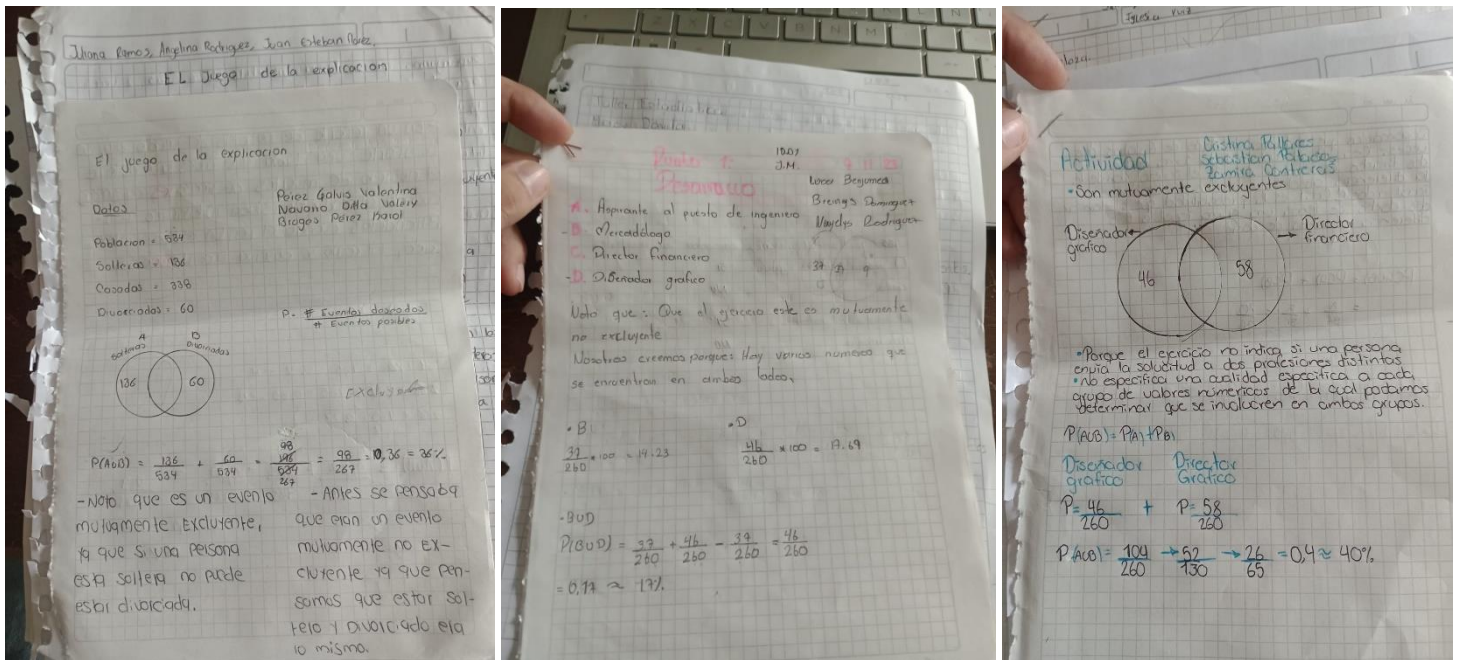 Juliana Ramos, Angelina Rodriguez, Juan Esteban Perez
EL Juego de la explicacion
El juego de la explicacion
Datos
Perez Galvis Valentina
Navarro Valery
Perez Karol
Poblacion = 534
Solteros = 136
Casados = 338
Divorciados = 60
P. = # Eventos deseados / # Eventos posibles
A
Solteros
D
Divorciados
136
60
P(AuB) = 136/534 + 60/534 = 196/534 = 98/267 = 0,36 = 36%
98
267
-Noto que es un evento
mutuamente Excluyente,
ya que si una persona
esta soltera no puede
estar divorciada.
-Antes se pensaba
que eran un evento
mutuamente no ex-
cluyente ya que pen-
samos que estar sol-
tero y Divorciado era
lo mismo.
Punto 1:
J.M.
Desarrollo
Breinys Dominguez
Rodriguez
A. Aspirante al puesto de ingeniero
-B. Mercadólogo
C. Director financiero
-D. Diseñador grafico
37
9
Noto que: Que el ejercicio este es mutuamente
no excluyente
Nosotros creemos porque: Hay varios numeros que
se encuentran en ambos lados,
•B
37/260 × 100 = 14.23
•D
46/260 × 100 = 17.69
-BUD
P(BUD) = 37/260 + 46/260 - 37/260 = 46/260
= 0,17 ≈ 17%
Actividad
Cristina Pallares
Sebastian
Zamira Contreras
•Son mutuamente excluyentes
Diseñador
grafico
Director
financiero
46
58
•Porque el ejercicio no indica si una persona
envia la solucitud a dos profesiones distintas
•No especifica una cualidad especifica a cada
grupo de valores numericos de la cual podamos
determinar que se involucren en ambos grupos.
P(AUB) = P(A) + P(B)
Diseñador
grafico
Director
Grafico
P = 46/260 + P = 58/260
P(AUB) = 104/260 → 52/130 → 26/65 = 0,4 ≈ 40%